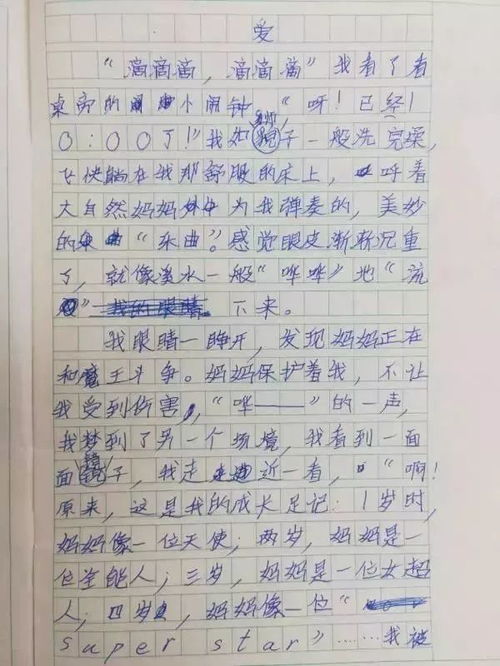 爱
"滴滴滴，滴滴滴"我看了看
桌旁的小闹钟，"呀！已经1
0：00了！"我如豹子一般洗完澡，
飞快躺在我那舒服的床上，呼着
大自然妈妈为我弹奏的，美妙
的"乐曲"。感觉眼皮渐渐沉重
了，就像溪水一般"哗哗"地"流
"下来。
我眼睛一睁开，发现妈妈正在
和魔王斗争。妈妈保护着我，不让
我受到伤害，"哗——"的一声，
我梦到了另一个场境，我看到一面
面镜子，我走近一看，"啊！
原来，这是我的成长足记：1岁时，
妈妈像一位天使；两岁，妈妈是一
位全能人；三岁，妈妈是一位女超
人；四岁，妈妈像一位"
super star"……我被